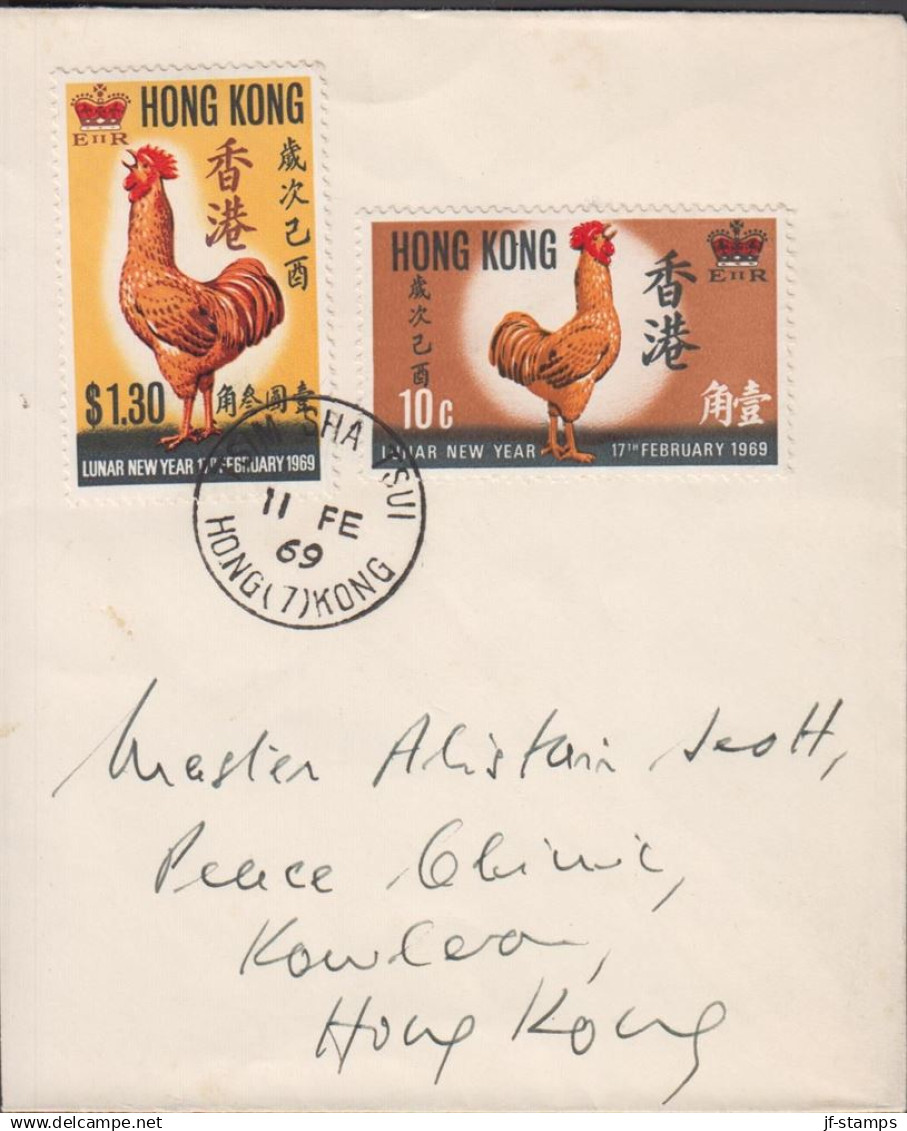 HONG KONG
E II R
香港
歲次己酉
$1.30
角叁圓壹
LUNAR NEW YEAR 17TH FEBRUARY 1969
HONG KONG
E II R
歲次己酉
香港
10c
角壹
LUNAR NEW YEAR 17TH FEBRUARY 1969
TSIM SHA TSUI
11 FE
69
HONG (7) KONG
Master Alistair Scott,
Peace Clinic,
Kowloon,
Hong Kong
jf-stamps